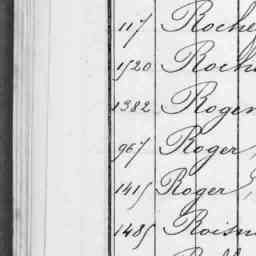 117 Roche
1520 Roch
1382 Roger
967 Roger,
1415 Roger,
1485 Roisn